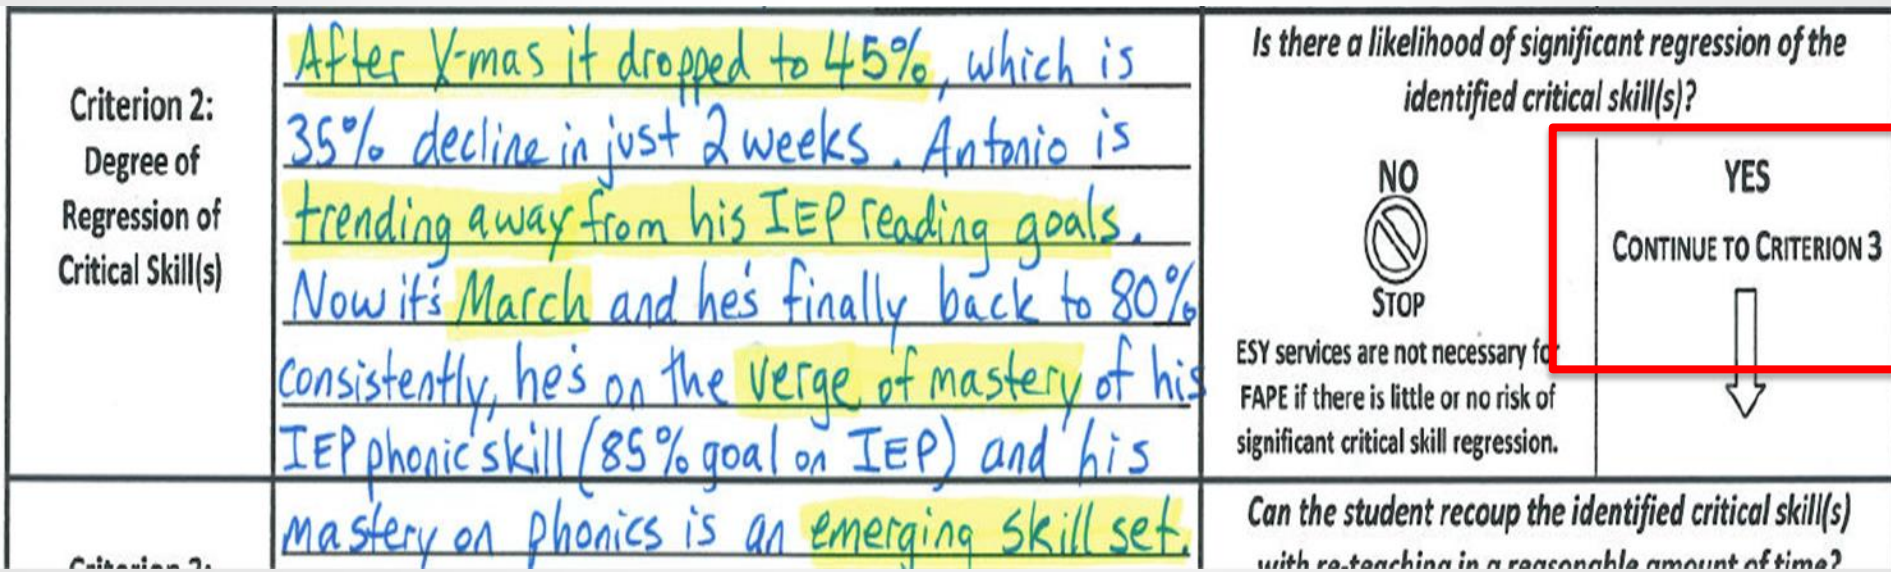 Criterion 2:
Degree of
Regression of
Critical Skill(s)
After X-mas it dropped to 45%, which is
35% decline in just 2 weeks. Antonio is
trending away from his IEP reading goals.
Now it's March and he's finally back to 80%
consistently, he's on the verge of mastery of his
IEP phonic skill (85% goal on IEP) and his
Is there a likelihood of significant regression of the
identified critical skill(s)?
NO
STOP
ESY services are not necessary for
FAPE if there is little or no risk of
significant critical skill regression.
YES
CONTINUE TO CRITERION 3
mastery on phonics is an emerging skill set.
Can the student recoup the identified critical skill(s)
with re-teaching in a reasonable amount of time?